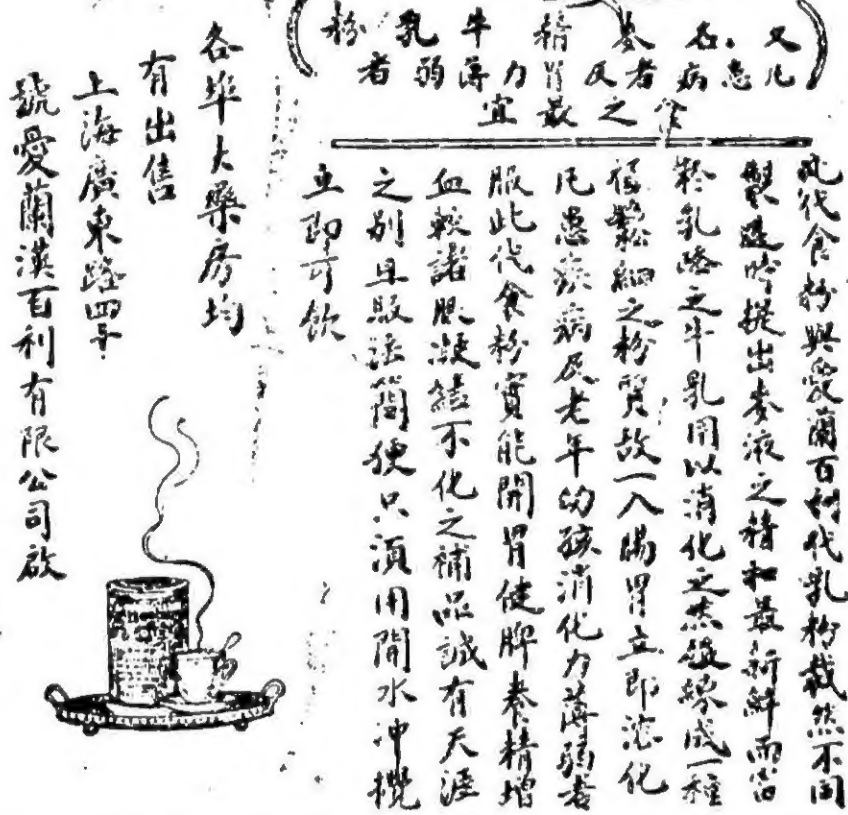 又名麥精牛乳粉
凡患病者及胃力薄弱者
食之最宜
此代食粉與愛蘭百利代乳粉截然不同
製造時提出麥液之精和最新鮮而富
於乳酪之牛乳用以消化之煉成一種
極鬆細之粉質故一入腸胃立即溶化
凡患疾病及老年幼孩消化力薄弱者
服此代食粉實能開胃健脾養精增
血較諸服凝結不化之補品誠有天涯
之別且服法簡便只須用開水沖攪
立即可飲
各埠大藥房均
有出售
上海廣東路四
號愛蘭漢百利有限公司啟